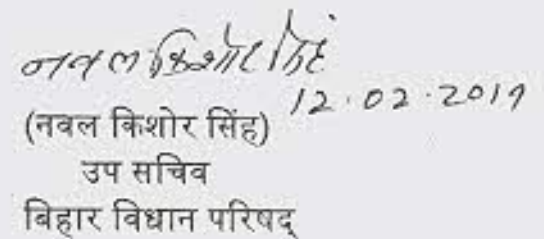 नवल किशोर सिंह
12.02.2019
(नबल किशोर सिंह)
उप सचिव
बिहार विधान परिषद्